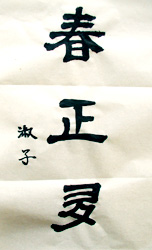 春正多
淑子